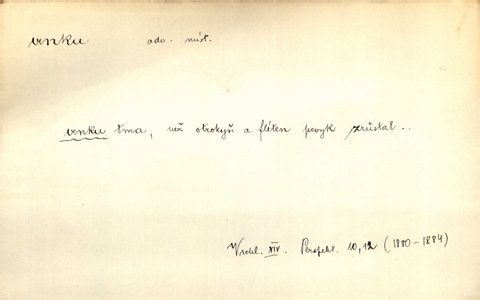 venku adv. míst.
venku tma, než otrokyň a fléten povyk zrůstal..
Vrchl. XIV. Perspekt. 10,12 (1880-1884)